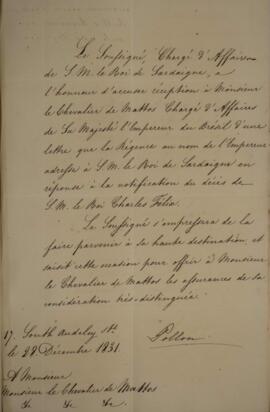 Le Soussigné, Chargé d'Affaires
de S. M. le Roi de Sardaigne, a
l'honneur d'accuser réception à Monsieur
le Chevalier de Mattos Chargé d'Affaires
de Sa Majesté l'Empereur du Brésil d'une
lettre que la Régence au nom de l'Empereur
adresse à S. M. le Roi de Sardaigne en
réponse à la notification du décès de
S. M. le Roi Charles Félix.
Le Soussigné s'empressera de la
faire parvenir à sa haute destination, et
saisit cette occasion pour offrir à Monsieur
le Chevalier de Mattos les assurances de sa
considération très-distinguée.
17. South Audley St.
le 29 Décembre 1831.
Pollon
A Monsieur
Monsieur le Chevalier de Mattos
&c &c &c